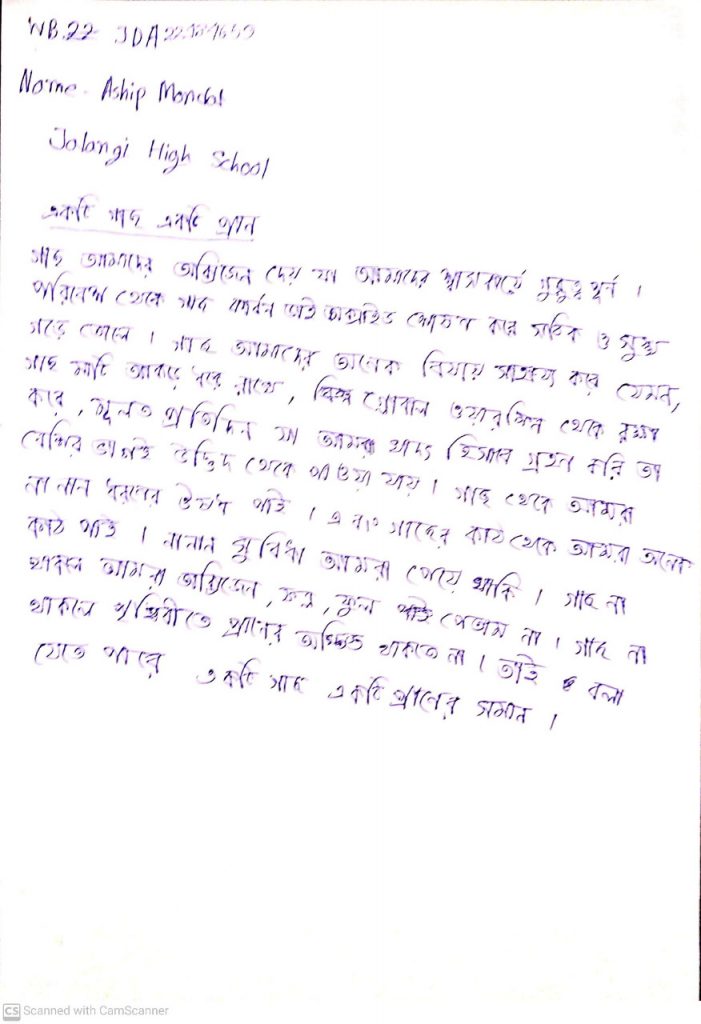 WB.22 JDA
Name. Aship Mondal
Jalangi High School
একটি গাছ একটি প্রান
গাছ আমাদের অক্সিজেন দেয় যা আমাদের শ্বাসকার্যে গুরুত্ব পূর্ন ।
পরিবেশ থেকে গাছ কার্বন ডাই অক্সাইড শোষণ করে সঠিক ও সুস্থ
গড়ে তোলে । গাছ আমাদের অনেক বিষয়ে সাহায্য করে যেমন,
গাছ মাটি আকড়ে ধরে রাখে, গ্লোবাল ওয়ারমিং থেকে রক্ষা
করে, মূলত প্রতিদিন যা আমরা খাদ্য হিসাবে গ্রহণ করি তা
বেশির ভাগই উদ্ভিদ থেকে পাওয়া যায় । গাছ থেকে আমরা
না নান ধরনের ঔষধ পাই । এবং গাছের কাঠ থেকে আমরা অনেক
কাঠ পাই । নানান সুবিধা আমরা পেয়ে থাকি । গাছ না
থাকলে আমরা অক্সিজেন, ফল, ফুল পেতাম না । গাছ না
থাকলে পৃথিবীতে প্রানের অস্তিত্ব থাকতো না । তাই বলা
যেতে পারে একটি গাছ একটি প্রাণের সমান ।
CS Scanned with CamScanner